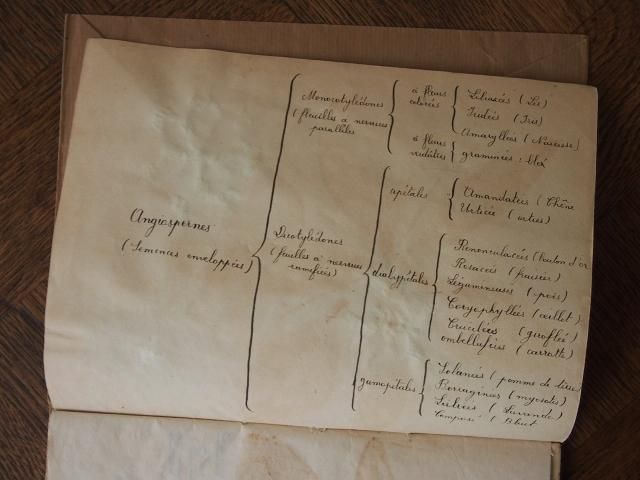 Angiospermes
(Semences enveloppées)
Monocotylédones
(feuilles à nervures
parallèles
à fleurs
colorées
Liliacées (Lis)
Iridées (Iris)
Amaryllées (Narcisse)
à fleurs
verdâtres
graminées : blé
Dicotylédones
(feuilles à nervures
ramifiées)
apétales
Amentacées (Chêne
Urticées (orties)
dialypétales
Renonculacées (bouton d'or
Rosacées (fraisier)
Légumineuses (pois)
Caryophyllées (œillet)
Crucifères (giroflée)
ombellifères (carotte)
gamopétales
Solanées (pomme de terre
Borraginées (myosotis)
Labiées (Lavande)
Composées (Bluet